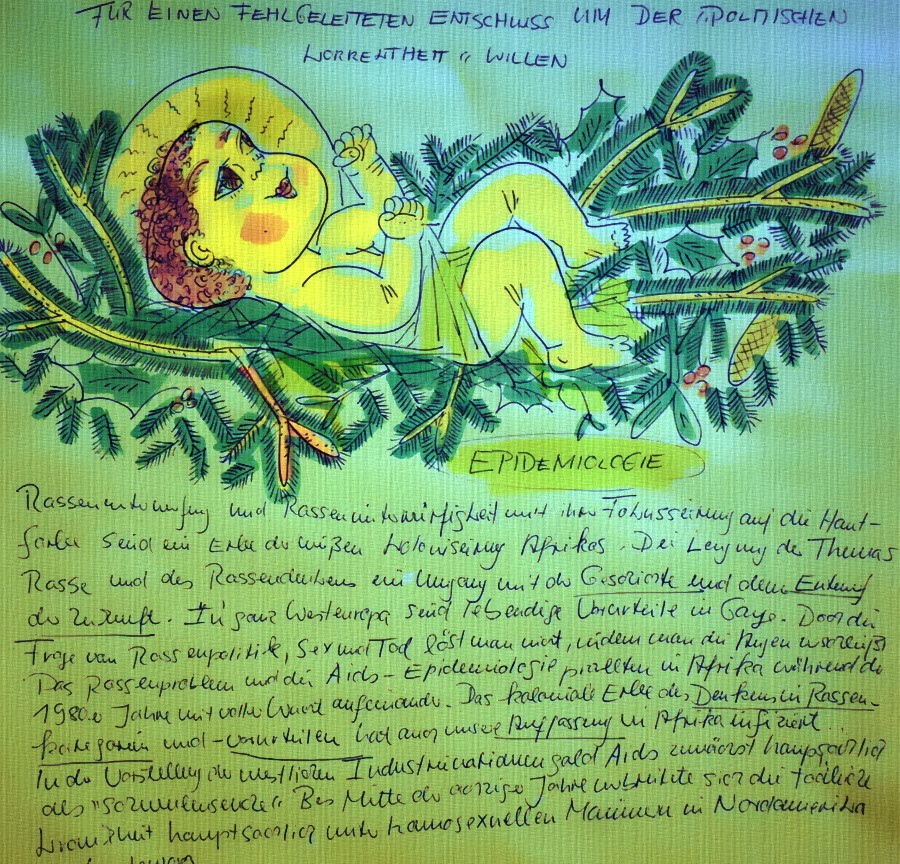 FÜR EINEN FEHLGELEITETEN ENTSCHLUSS UM DER "POLITISCHEN
KORREKTHEIT" WILLEN
EPIDEMIOLOGIE
und Rassenunterwürfigkeit mit ihrer Fokussierung auf die Haut-
farbe sind ein Erbe der weißen Kolonisierung Afrikas. Die Leugnung des Themas
Rasse und des Rassendenkens ein Umgang mit der Geschichte und dem Entwurf
der Zukunft. In ganz Westeuropa sind lebendige Vorurteile in Gange. Doch die
Frage von Rassenpolitik, Sex und Tod löst man nicht, indem man die Augen verschließt
Das Rassenproblem und die Aids-Epidemiologie prallten in Afrika während der
1980er Jahre mit voller Wucht aufeinander. Das koloniale Erbe des Denkens in Rassen-
kategorien und -vorurteilen hat auch unsere Auffassung in Afrika infiziert...
In der Vorstellung der westlichen Industrienationen galt Aids zunächst hauptsächlich
als "Schwulenseuche" Bis Mitte der achziger Jahre verbreitete sich die tödliche
Krankheit hauptsächlich unter homosexuellen Männern in Nordamerika